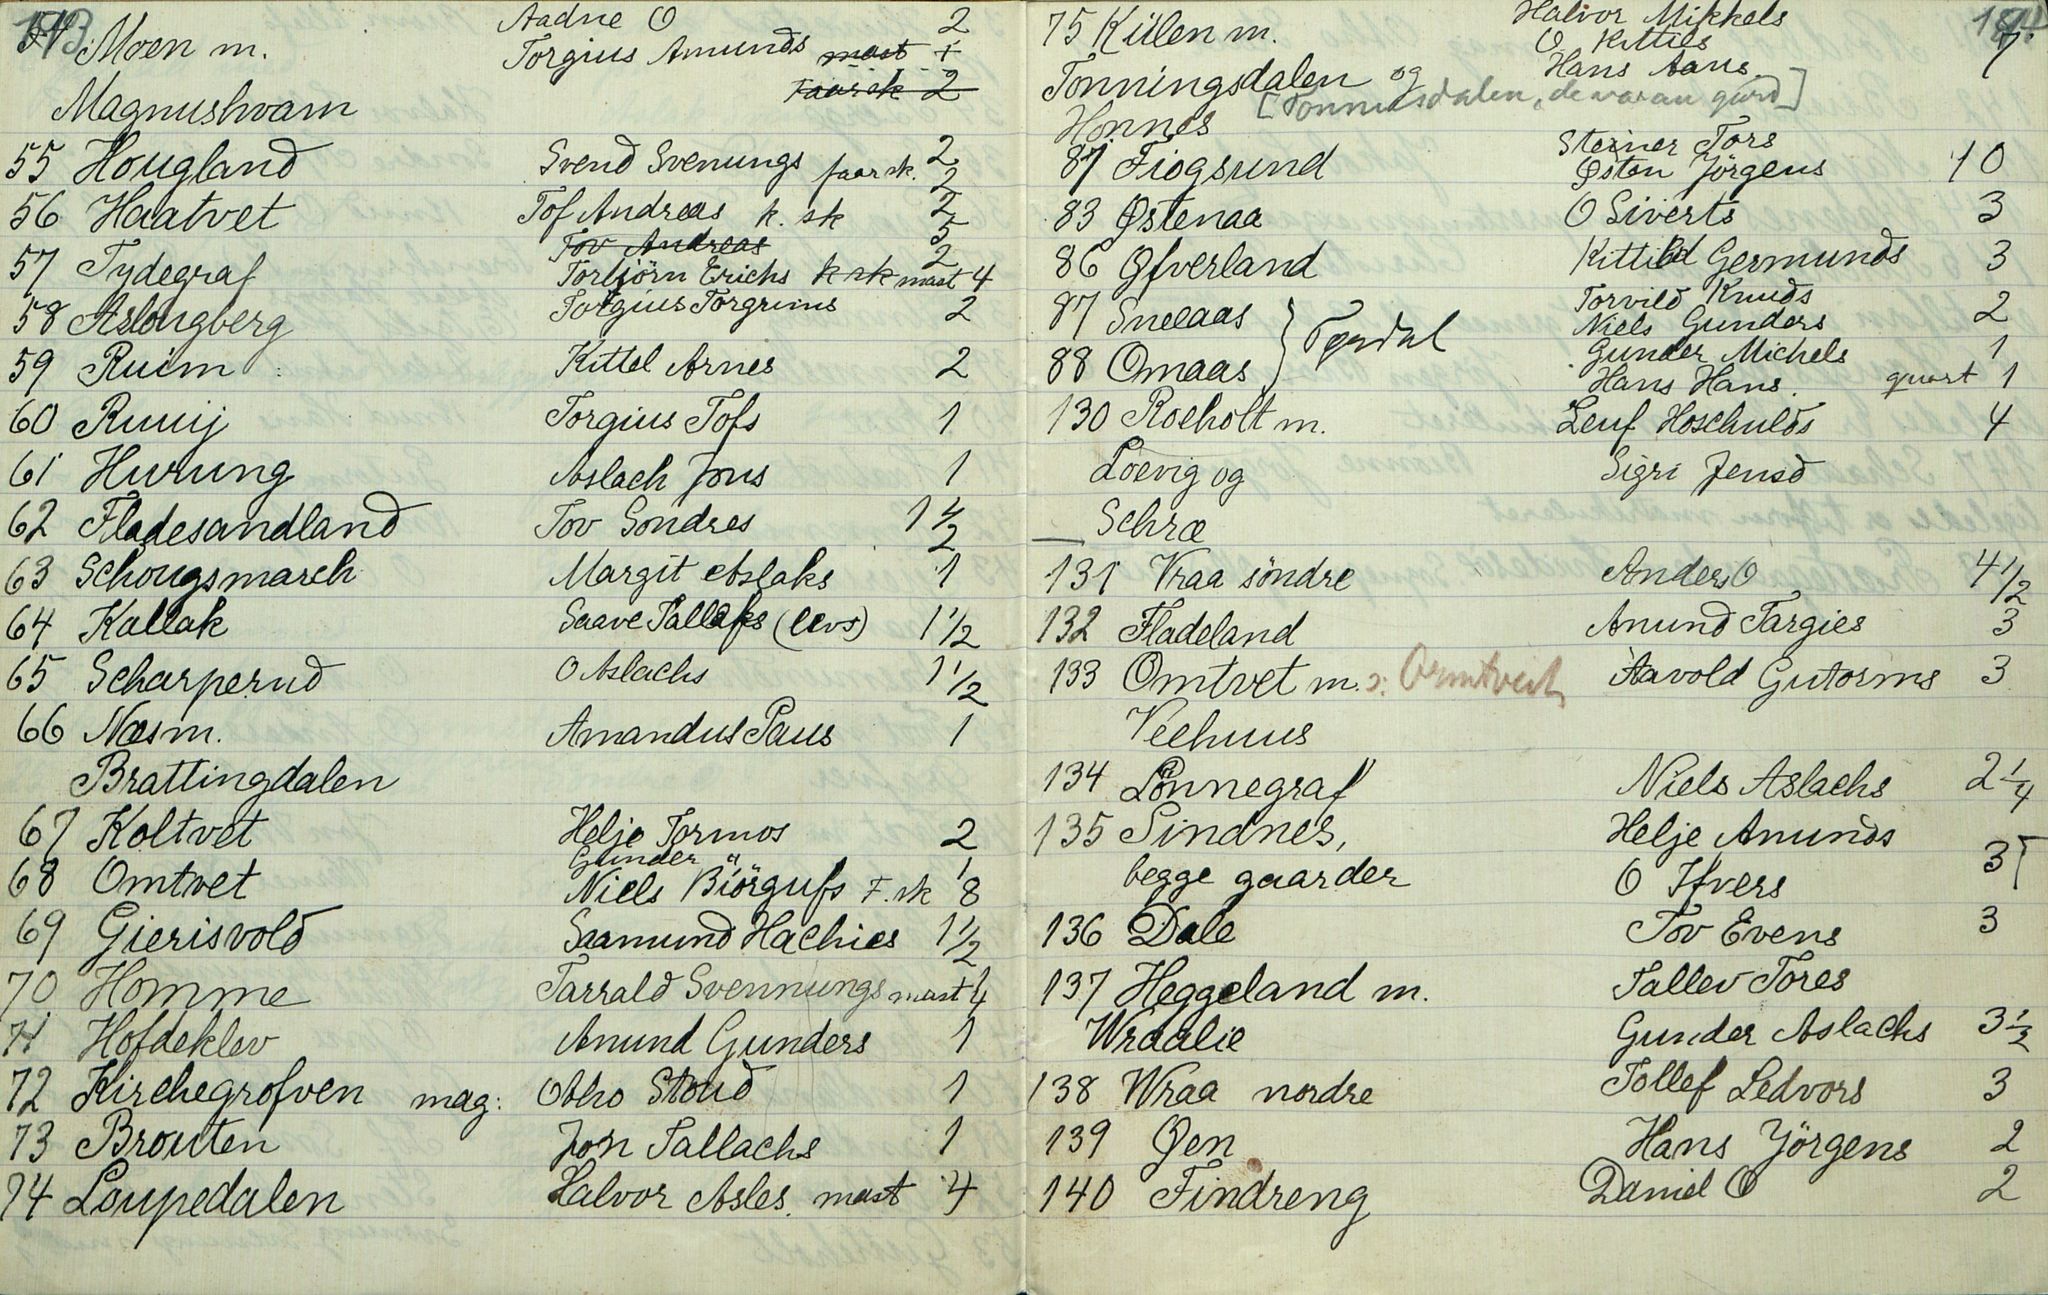 Aadne O 2
54 Moen m. Torgius Amunds mast +
Faarsk 2
Magnushvam
55 Hougland Svend Svenungs faarsk. 2
2
56 Haatvet Tof Andreas k. sk 2
Tov Andreas 5
57 Tydegraf Torbjörn Erichs k sk mast 4
2
58 Aslougberg Torgius Torgrims 2
59 Ruim Kittel Arnes 2
60 Ruuij Torgius Tofs 1
61 Hurung Aslach Jons 1
62 Fladesandland Tov Sondres 1 1/2
63 Schougsmarch Margit Aslaks 1
64 Kallak Saave Tallefs (Levs) 1 1/2
65 Scharperud O Aslachs 1 1/2
66 Næs m. Amandus Paus 1
Brattingdalen
67 Koltvet Helje Tormos 2
Gunder " 1
68 Omtvet Niels Biörgufs F. sk 8
69 Gierisvold Saamund Hachies 1 1/2
70 Homme Tarrald Svennungs mast 4
71 Hofdeklev Anund Gunders 1
72 Kirchegrofven mag: Otho Stoud 1
73 Brouten Jon Tallachs 1
74 Loupedalen Halvor Asles. mast 4
Halvor Mikkels
75 Kiilen m. O Kittils 7
Tonningsdalen og Hans Aans
[Tonnusdalen, de var au gard]
Honnes
Steiner Tors
81 Fiogsund Østen Jörgens 10
83 Østenaa O Siverts 3
86 Øfverland Kittild Germunds 3
Torvild Knuds
87 Snelaas Niels Gunders 2
Tørdal
Gunder Michels 1
88 Omaas Hans Hans. quart 1
130 Roeholt m. Leuf Hoschulds 4
Loevig og Sigri Jensd
Schræ
131 Vraa söndre Anders O 4 1/2
132 Fladeland Anund Targies 3
133 Omtvet m. ɔ: Ormtveit Aavold Gutorms 3
Veehuus
134 Lönnegraf Niels Aslachs 2 1/4
135 Sindnes, Helje Anunds
begge gaarder O Ifvers 3
136 Dale Tov Evens 3
137 Heggeland m. Tallev Tores
Wraalie Gunder Aslachs 3 1/2
138 Wraa nordre Tollef Ledvors 3
139 Øen Hans Jörgens 2
140 Findreng Daniel O 2